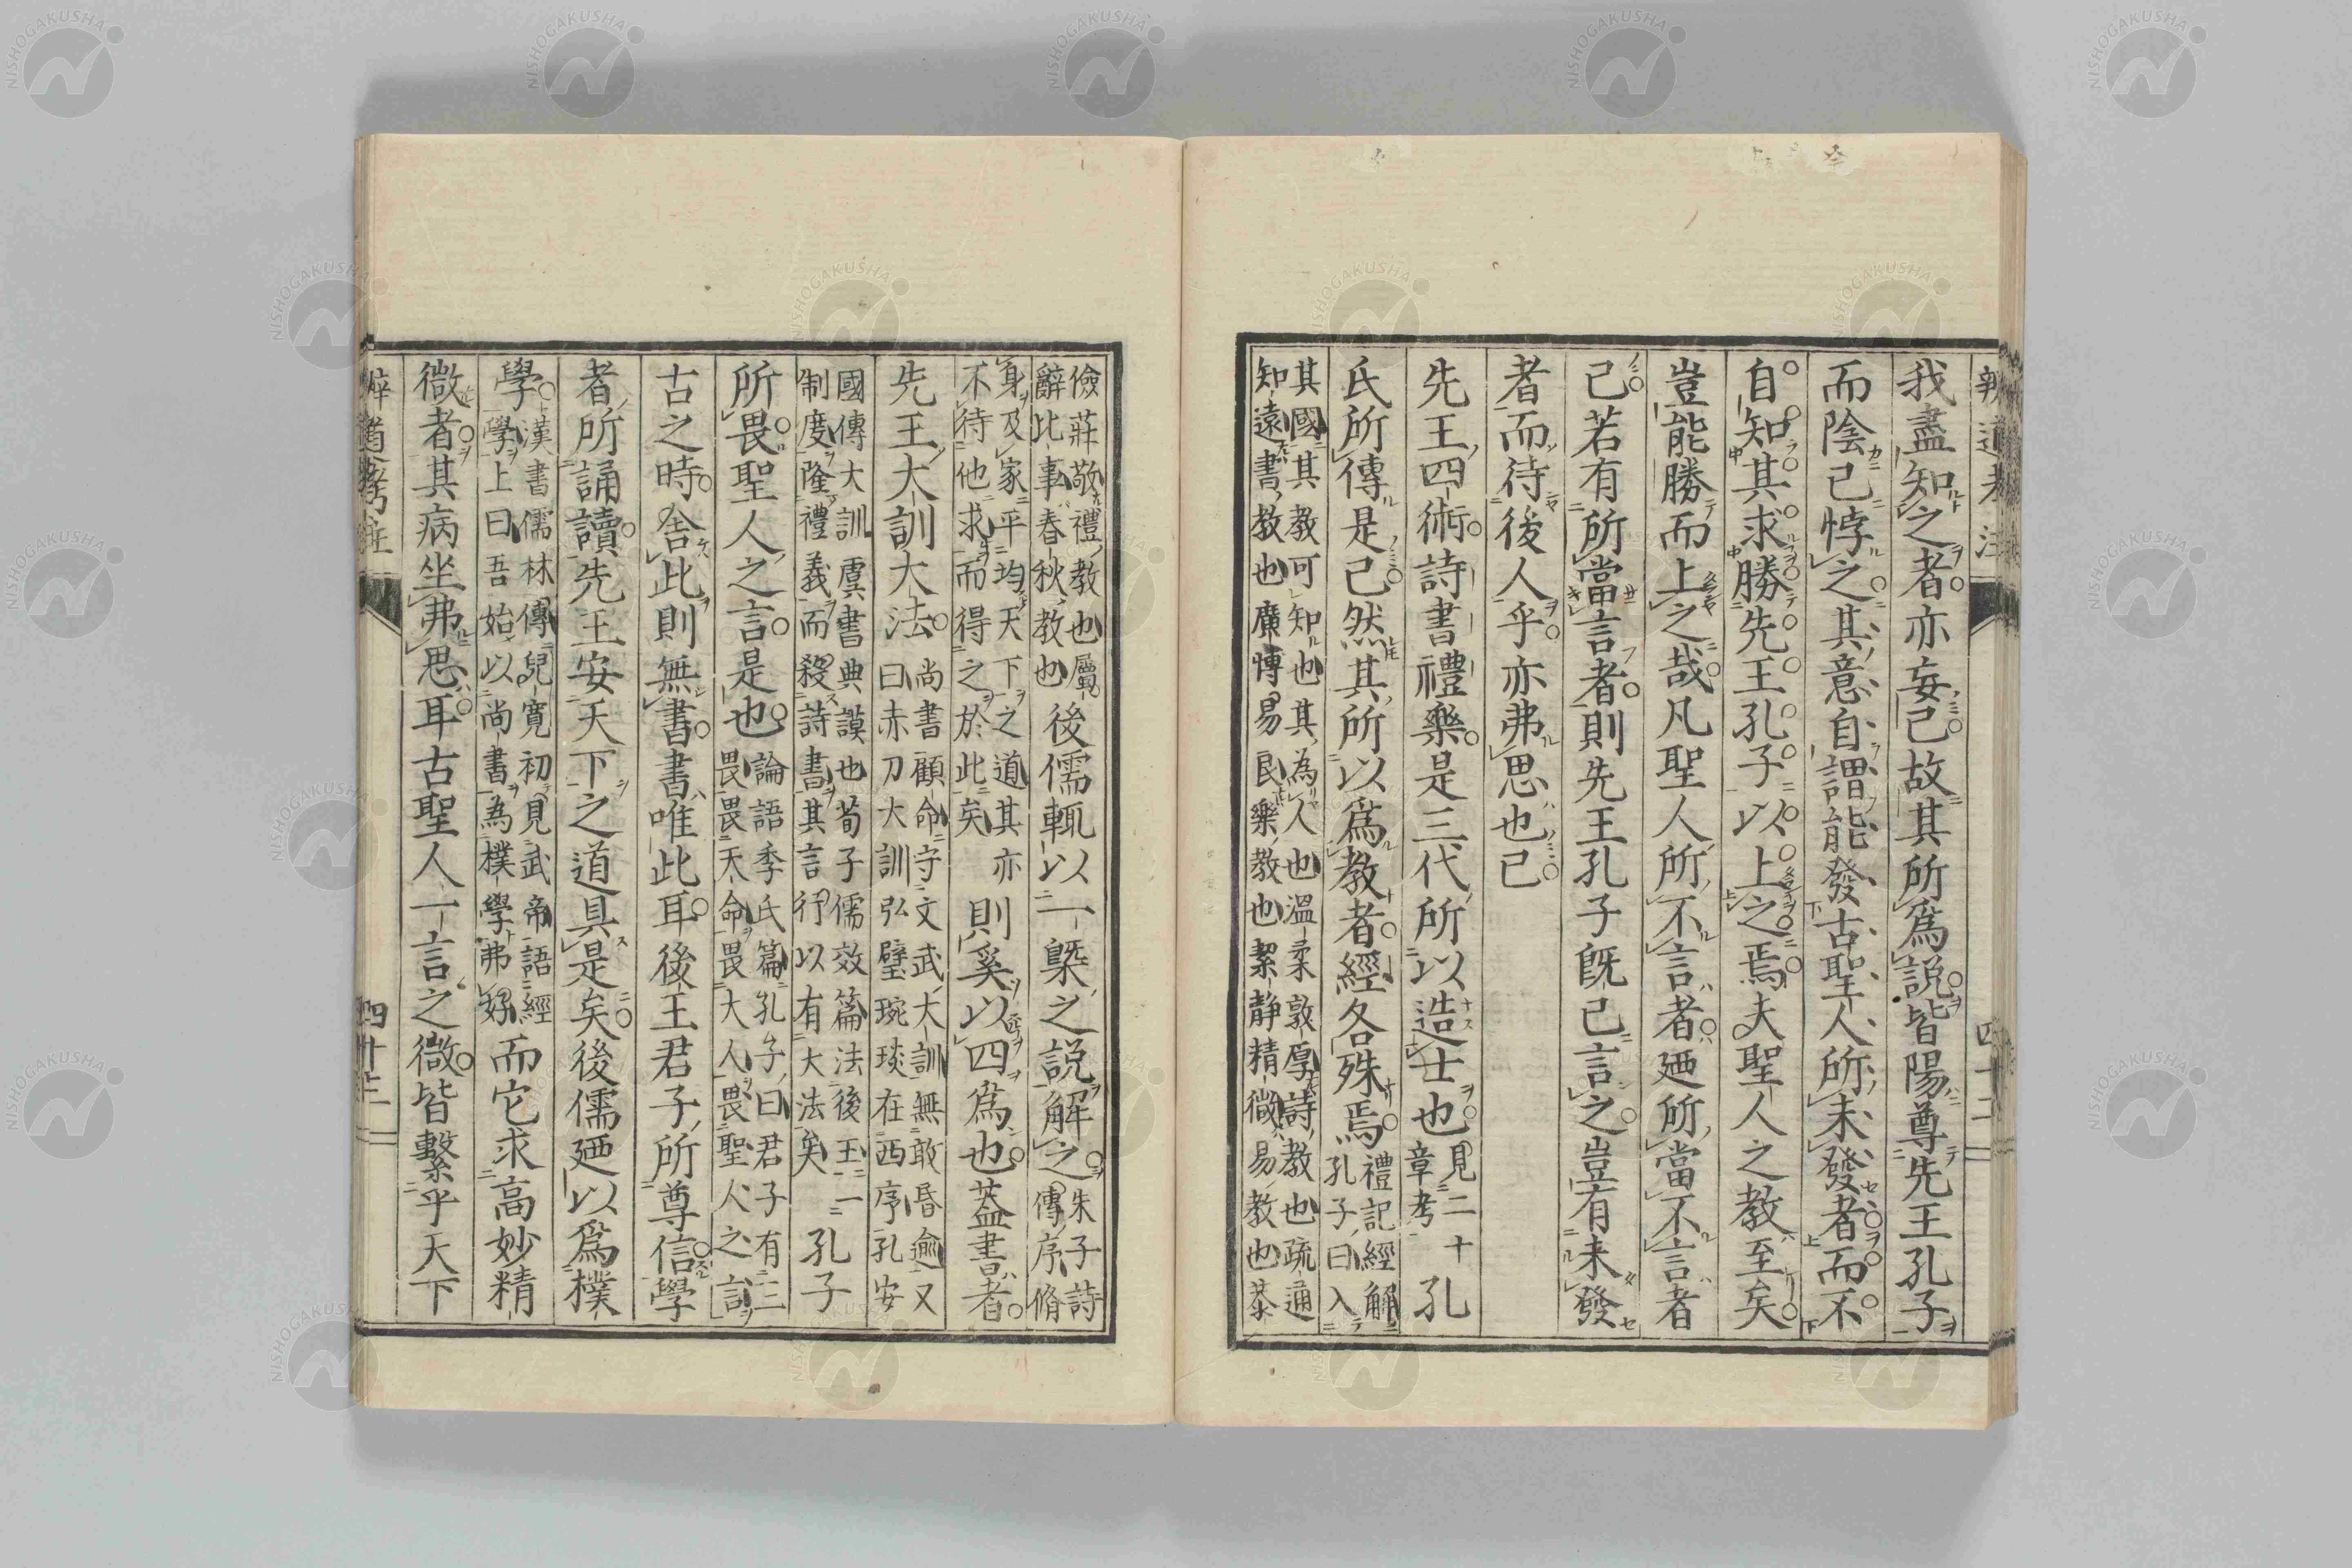 我盡知之者亦妄已故其所爲説皆陽尊先王孔子
而陰已悖之其意自謂能發古聖人所未發者而不
自知其求勝先王孔子以上之焉夫聖人之教至矣
豈能勝而上之哉凡聖人所不言者廼所當不言者
已若有所當言者則先王孔子既已言之豈有未發
者而待後人乎亦弗思也已
先王四術詩書禮樂是三代所以造士也見二十章考孔
氏所傳是已然其所以爲教者經各殊焉禮記經解孔子曰入
其國其教可知也其為人也溫柔敦厚詩教也疏通
知遠書教也廣愽易良樂教也絜静精微易教也恭
儉莊敬禮教也屬
辭比事春秋教也後儒輒以一槩之説解之朱子詩傳序脩
身及家平均天下之道其亦
不待他求而得之於此矣則奚以四爲也葢書者
先王大訓大法尚書顧命守文武大訓無敢昬逾又
曰赤刀大訓弘璧琬琰在西序孔安
國傳大訓虞書典謨也荀子儒效篇法後王一
制度隆禮義而殺詩書其言行以有大法矣孔子
所畏聖人之言是也論語季氏篇孔子曰君子有三
畏畏天命畏大人畏聖人之言
古之時舍此則無書書唯此耳後王君子所尊信學
者所誦讀先王安天下之道具是矣後儒廼以爲樸
學漢書儒林傳兒寛初見武帝語經
學上曰吾始以尚書為樸學弗好而它求高妙精
微者其病坐弗思耳古聖人一言之微皆繫乎天下